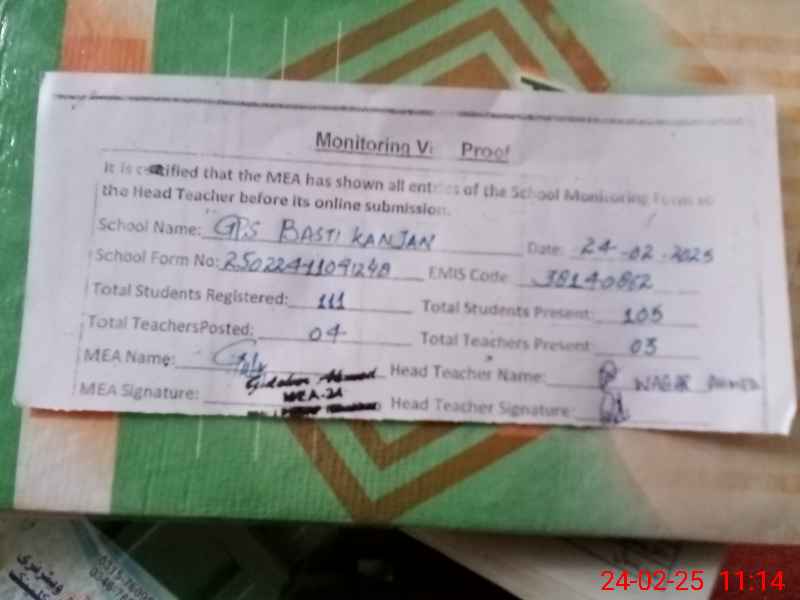 Monitoring Vi Proof
It is certified that the MEA has shown all entries of the School Monitoring Form to
the Head Teacher before its online submission.
School Name: GPS BASTI KANJAN
Date: 24-02-2025
School Form No: EMIS Code: 38140862
Total Students Registered: 111 Total Students Present: 105
Total TeachersPosted: 04 Total Teachers Present: 03
MEA Name: Head Teacher Name: WAQAR AHMED
Ahmad
MEA Signature: MEA-21 Head Teacher Signature:
24-02-25 11:14